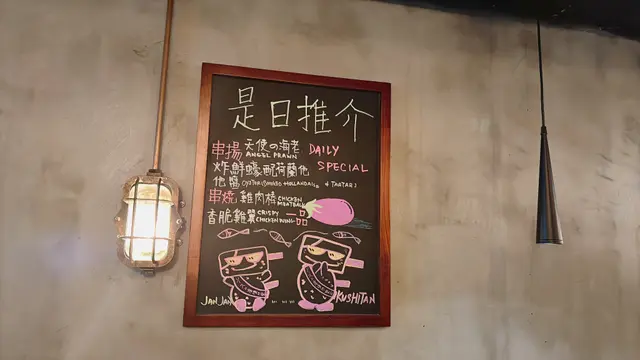 是日推介
串揚 天使の海老 DAILY
ANGEL PRAWN
炸鮮蠔配荷蘭他 SPECIAL
他醬 (OYSTER HOLLANDAISE & TARTAR)
串燒 雞肉棒 CHICKEN MEATBALL
香脆雞翼 CRISPY CHICKEN WING 一品
JAN JAN KUSHITAN